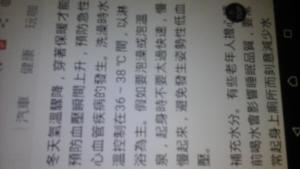 汽車 健康 玩咖
冬天氣溫驟降，穿著保暖才能
預防血壓瞬間上升，預防急性
心血管疾病的發生。洗澡時水
溫控制在36－38℃間，以淋
浴為主。假如要泡澡或泡溫
泉，起身時不要太過快速，慢
慢起來，避免發生姿勢性低血
壓。
補充水分。有些老年人擔心
前喝水會影響睡眠品質，
常起身上廁所而刻意減少水